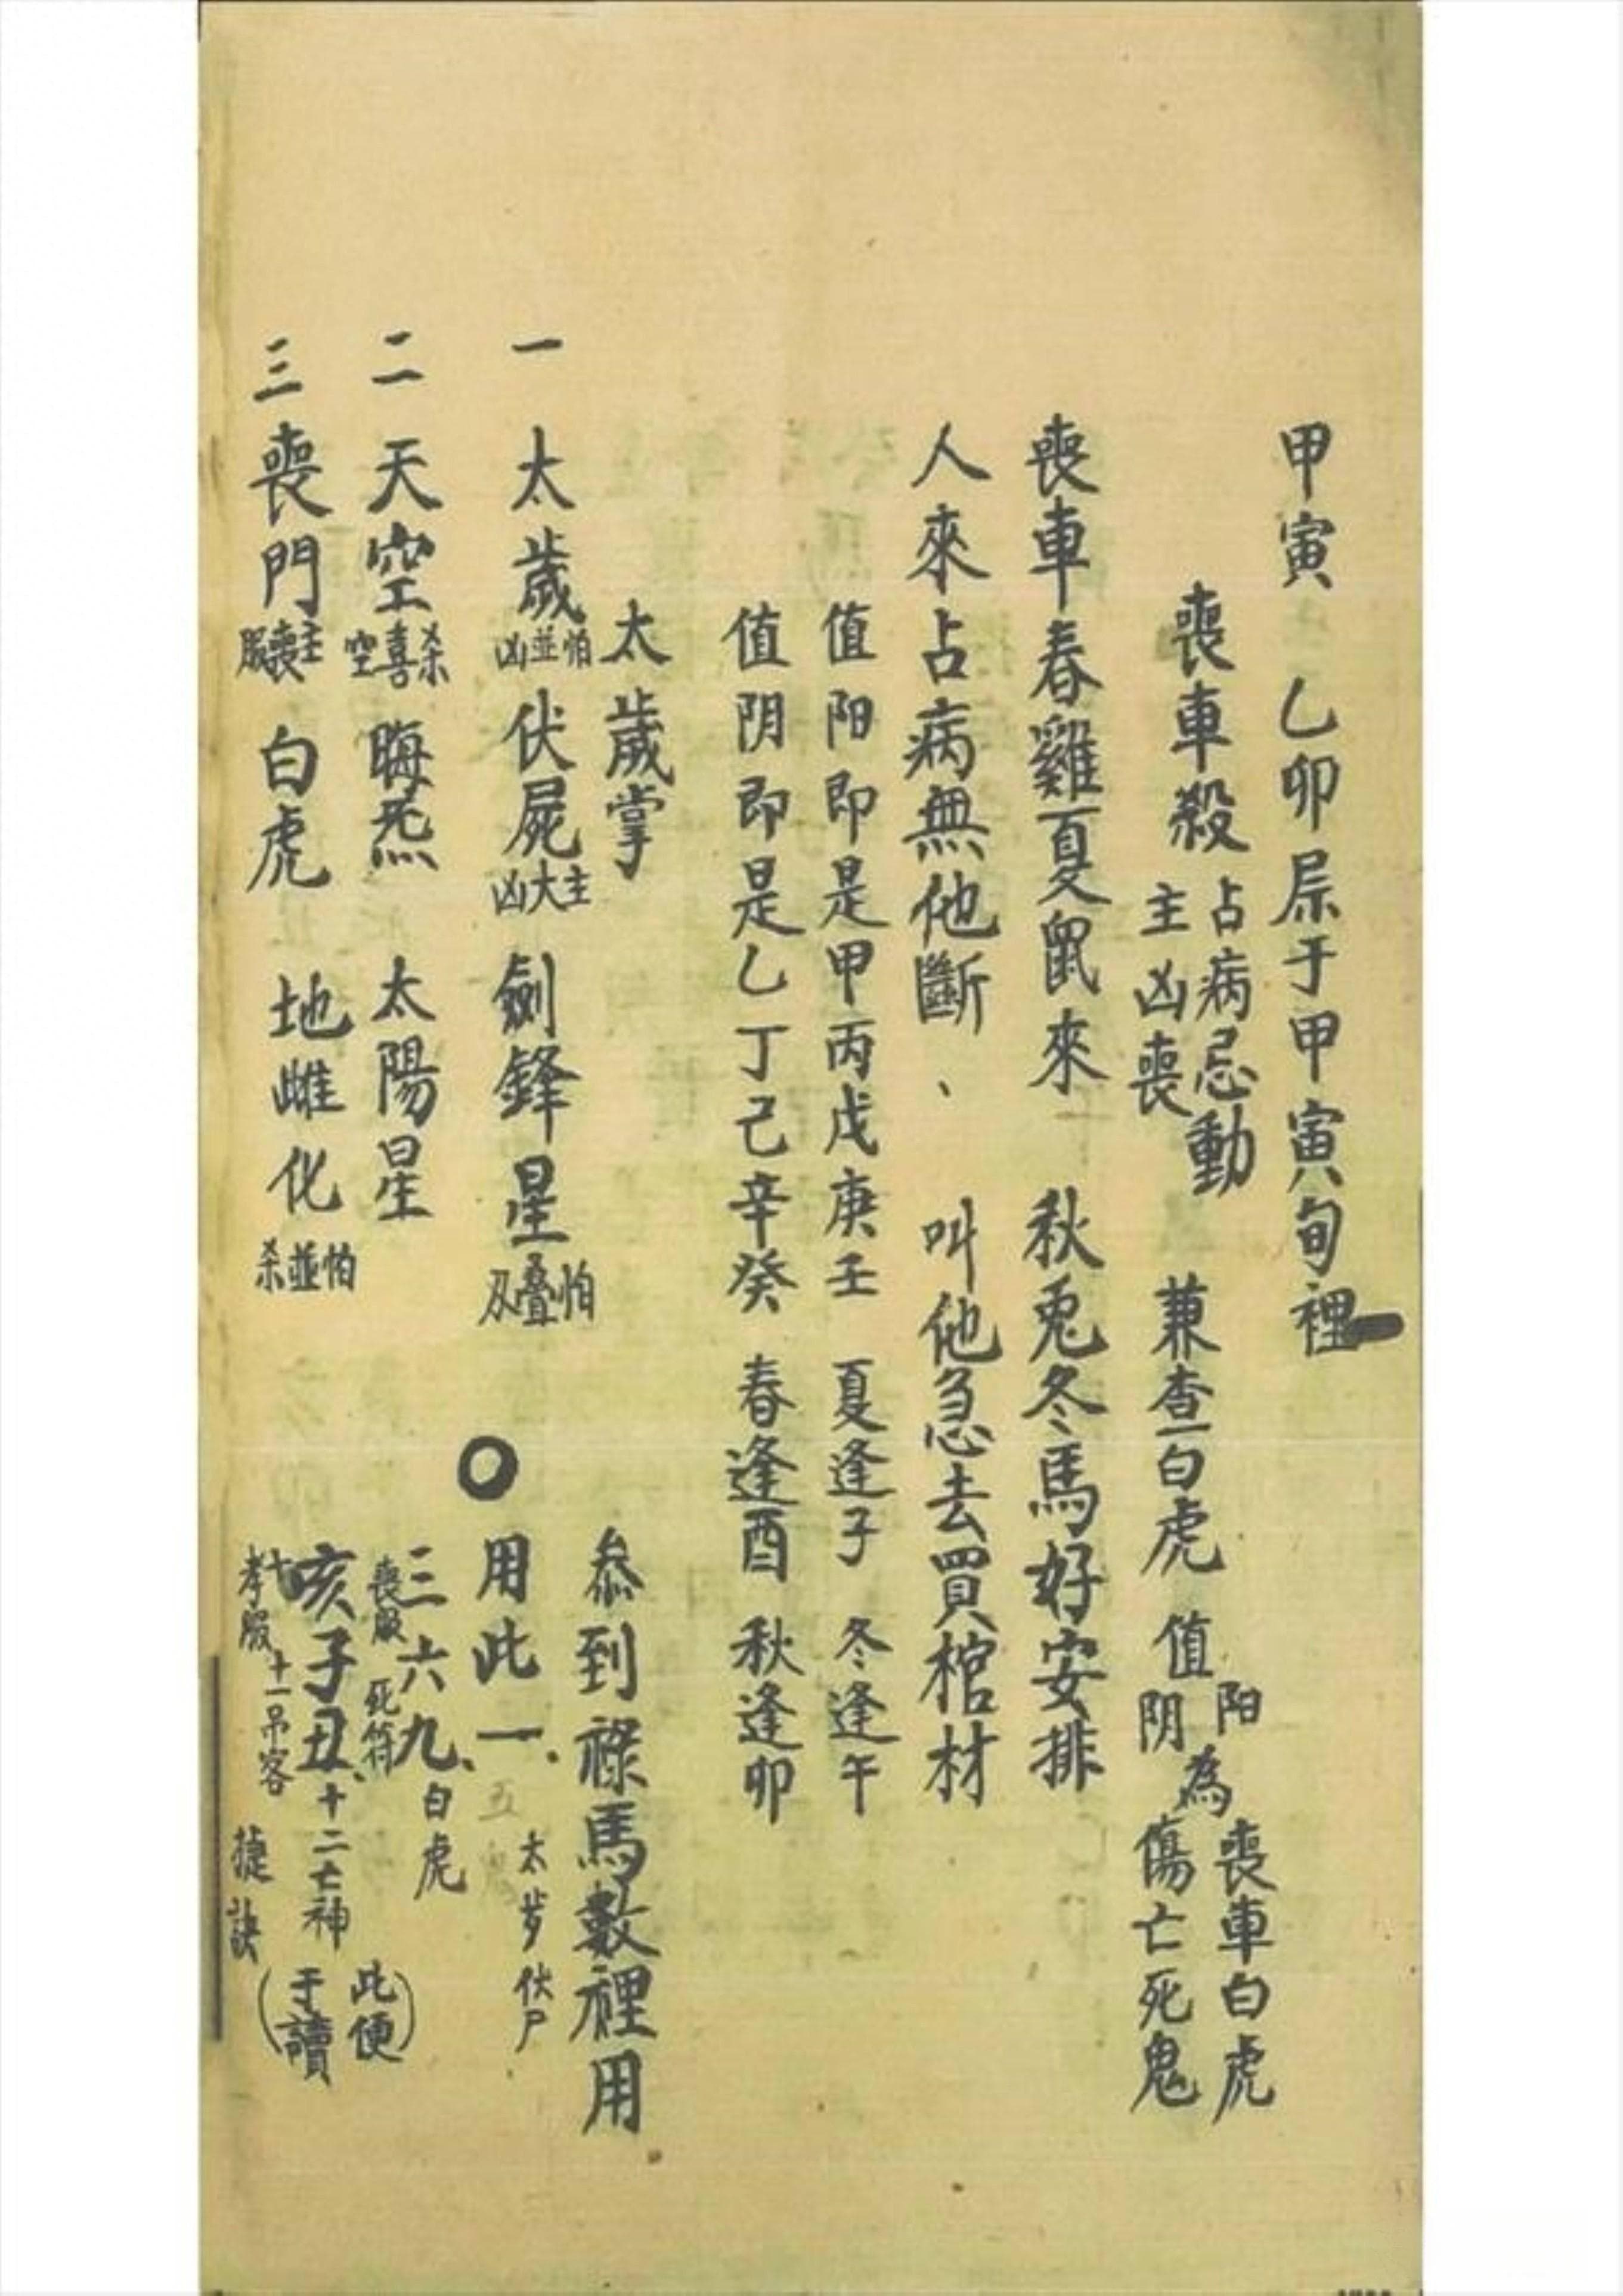 甲寅 乙卯屋于甲寅旬裡
喪車殺 占病忌動 主凶喪 兼查白虎 值 阳 阴 為 喪車白虎 傷亡死鬼
喪車春雞夏鼠來 秋兎冬馬好安排
人來占病無他斷、 叫他急去買棺材
值阳即是甲丙戊庚壬 夏逢子 冬逢午
值阴即是乙丁己辛癸 春逢酉 秋逢卯
太歲掌
叅到祿馬數裡用
一 太歲 怕並凶 伏屍 主大凶 劍鋒星 怕疊刄
用此一 太岁 伏尸
二 天空 杀喜空 晦炁 太陽星
三六九、白虎
喪服 死符
三 喪門 主喪服 白虎 地雌化 怕並杀
亥子丑、十二亡神
十孝服 十一吊客 捷訣
(此便于讀)